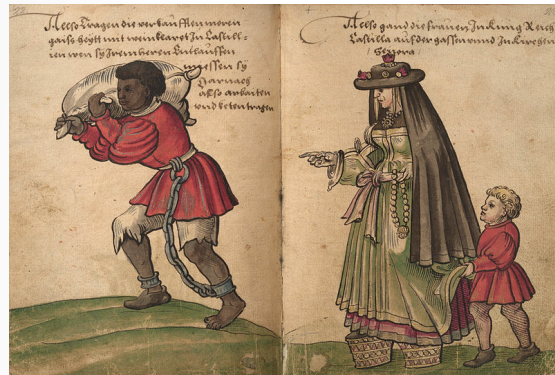 Allso Tragen die verkaufften moren
gaiß heytt mit wein klaret Jn Castill=
ien wen sy Jren herren Entlauffen
miessen sy
Harnach
also arbaiten
vnd keten tragen
Allso gand die frauen Jn Kung Reich
Castilia auf der gassen vnnd Jn kirchen